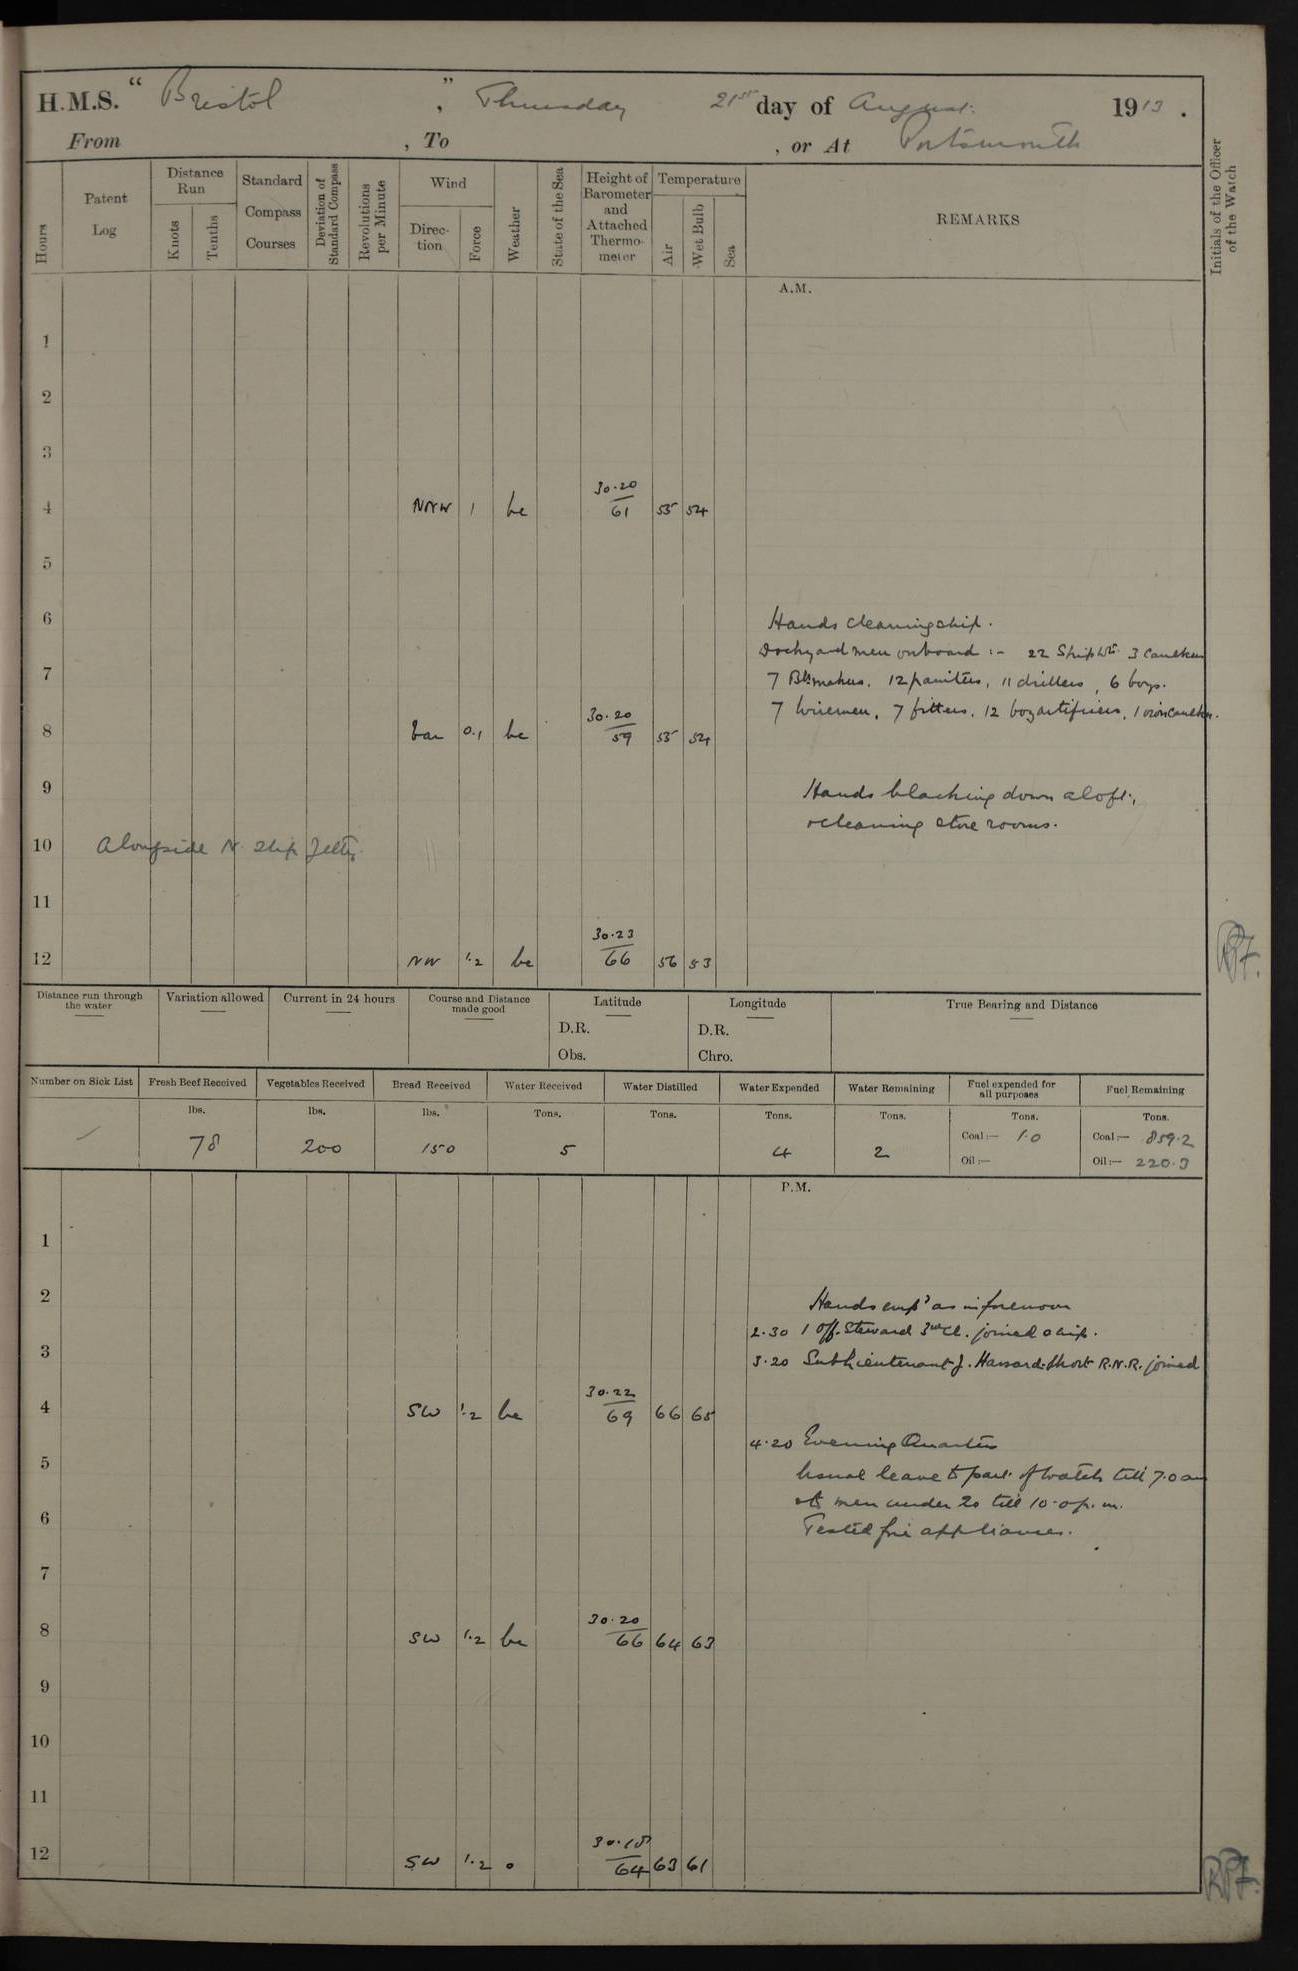 H.M.S. " Bristol " , Thursday 21st day of August. 1913 .
From , To , or At Portsmouth
Hours
Patent Log
Distance Run
Knots
Tenths
Standard Compass Courses
Deviation of Standard Compass
Revolutions per Minute
Wind
Direction
Force
Weather
State of the Sea
Height of Barometer and Attached Thermometer
Temperature
Air
Wet Bulb
Sea
REMARKS
Initials of the Officer of the Watch
A.M.
1
2
3
4 NNW 1 bc 30.20/61 55 54
5
6 Hands cleaning ship.
Dockyard men onboard :- 22 Shipwts. 3 Caulkers
7 7 Blrmakers, 12 painters, 11 drillers, 6 boys.
7 Wiremen, 7 fitters, 12 boy artificers, 1 iron caulker.
8 Var 0.1 bc 30.20/59 55 54
9 Hands blacking down aloft,
& cleaning store rooms.
10 Alongside N. Slip Jetty
11
12 NW 1.2 bc 30.23/66 56 53
Distance run through the water
Variation allowed
Current in 24 hours
Course and Distance made good
Latitude
D.R.
Obs.
Longitude
D.R.
Chro.
True Bearing and Distance
Number on Sick List
Fresh Beef Received lbs. 78
Vegetables Received lbs. 200
Bread Received lbs. 150
Water Received Tons. 5
Water Distilled Tons.
Water Expended Tons. 4
Water Remaining Tons. 2
Fuel expended for all purposes Tons.
Coal:— 1.0
Oil:—
Fuel Remaining Tons.
Coal:— 859.2
Oil:— 220.3
P.M.
1
2 Hands empd as in forenoon
2.30 1 Off. Steward 3rd Cl. joined ship.
3 3.20 Sub Lieutenant J. Short R.N.R. joined
4 SW 1.2 bc 30.22/69 66 65
4.20 Evening Quarters
5 Usual leave to part of watch till 7.0 am
& men under 20 till 10.0 p.m.
6 Tested fire appliances.
7
8 SW 1.2 bc 30.20/66 64 63
9
10
11
12 SW 1.2 o 30.18/64 63 61